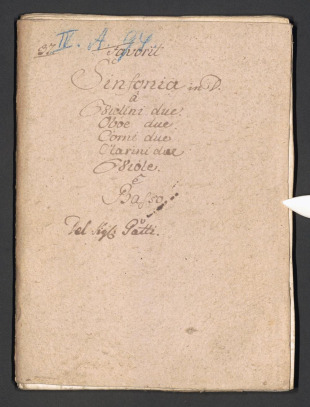 IV. A. 94
Favorit
Sinfonia in D.
à
Violini due.
Oboe due.
Corni due
Clarini due
Viole.
e
Basso
Del Sigl: Gatti.